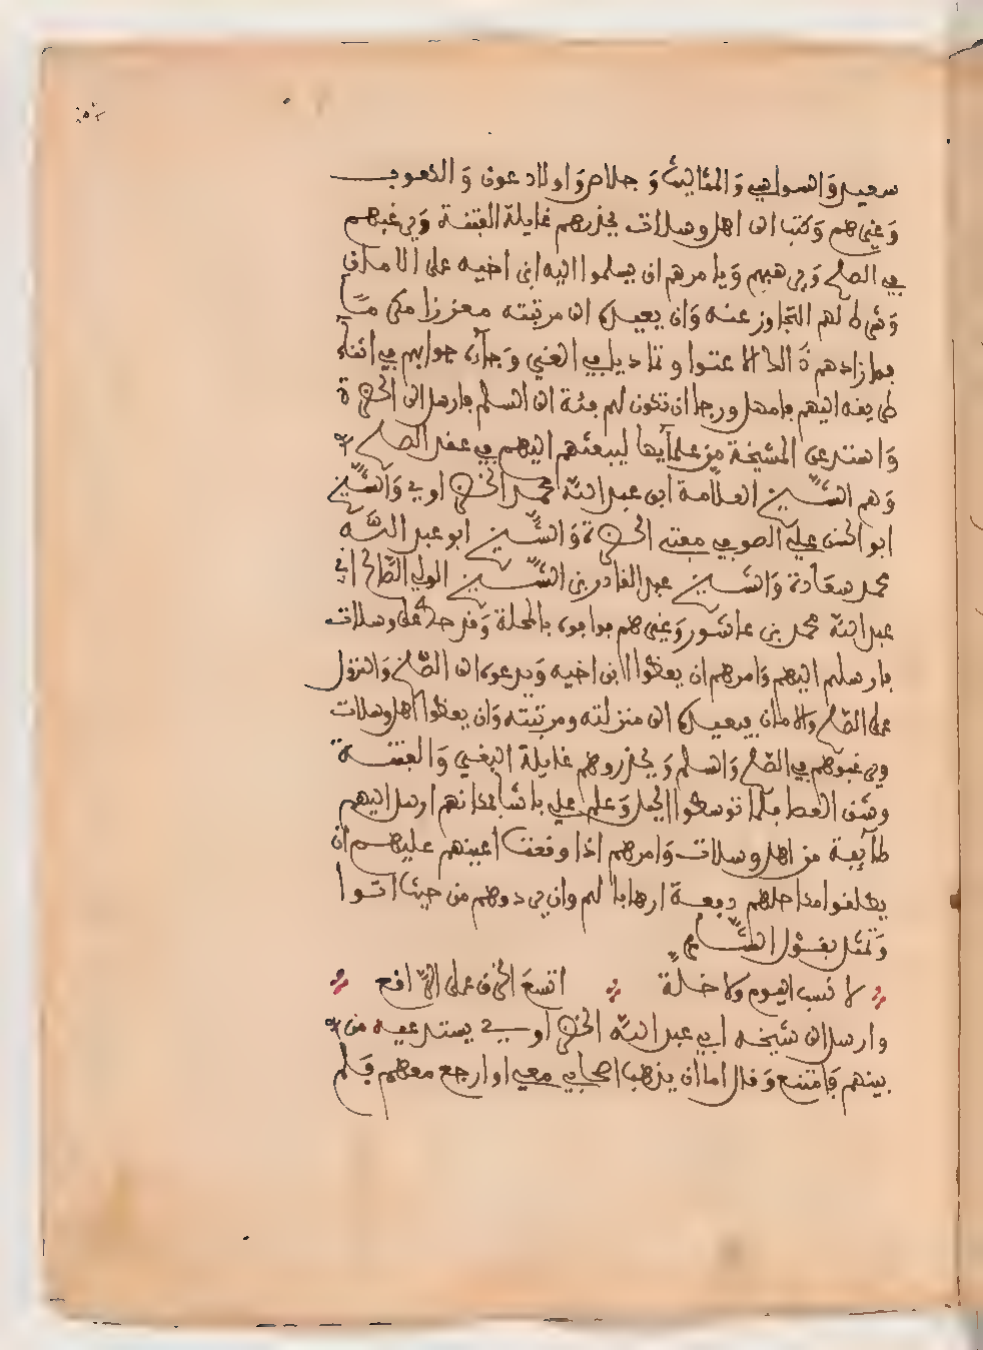 سعيد والسواسي والمثاليث وجلاص واولاد عون والكعوب
وغيرهم وكتب الى اهل وسلات يحذرهم غايلة الفتنة ويرغبهم
في الصلح ويرهبهم ويامرهم ان يسلموا اليه ابن اخيه على الامان
وشرط لهم التجاوز عنه وان يعيده الى مرتبته معززا مكرما
فما زادهم ذلك الا عتوا وتماديا في الغي وجاءه جوابهم في اثناء
طريقه اليهم فامهل ورجا ان تكون لهم فئة الى السلم فارسل الى الحضرة
واستدعى المشيخة من علمايها ليبعثهم اليهم في عقد الصلح
وهم الشيخ العلامة ابي عبد الله محمد الخضراوي والشيخ
ابو الحسن علي الصوفي مفتي الحضرة والشيخ ابو عبد الله
محمد سعادة والشيخ عبد القادر بن الشيخ الولي الصالح ابي
عبد الله محمد بن عاشور وغيرهم فوافوه بالمحلة وقد حل على وسلات
فارسلهم اليهم وامرهم ان يعظوا ابن اخيه ويدعوه الى الصلح والنزول
على الصلح والامان فيعيده الى منزلته ومرتبته وان يعظوا اهل وسلات
ويرغبوهم في الصلح والسلم ويحذروهم غايلة البغي والفتنة
وشق العصا فلما توسطوا الجبل وعلم علي باشا بمكانهم ارسل اليهم
طايفة من اهل وسلات وامرهم اذا وقعت اعينهم عليهم ان
يطلقوا مكاحلهم دفعة ارهابا لهم وان يردوهم من حيث اتوا
وتمثل بقول الشاعر
لا نسب اليوم ولا خلة اتسع الخرق على الراقع
وارسل الى شيخه ابي عبد الله الخضراوي يستدعيه من
بينهم فامتنع وقال اما ان يذهب اصحابي معي او ارجع معهم فلم